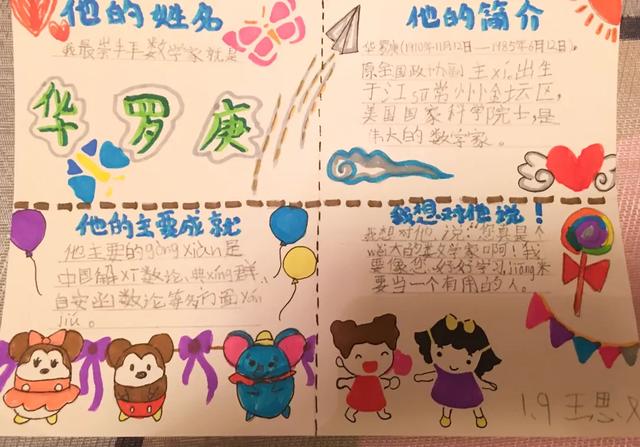 他的姓名
我最崇拜手数学家就是
华罗庚
他的简介
华罗庚(1910年11月12日—1985年6月12日)。
原全国政协副主xi。出生
于江su常州金坛区，
美国国家科学院院士，是
伟大的数学家。
他的主要成就
他主要的gòng xiàn是
中国解xī数论、典xíng群、
自安函数论等多方面yán
jiū。
我想对他说！
我想对他说“您真是个
wěi大的数学家啊！我
要像您好好学习jiāng来
要当一个有用的人。
1.9 王思